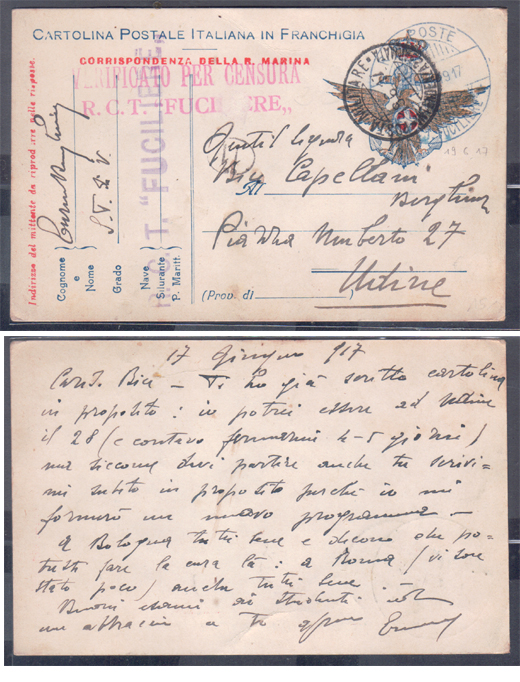 CARTOLINA POSTALE ITALIANA IN FRANCHIGIA
CORRISPONDENZA DELLA R. MARINA
VERIFICATO PER CENSURA
R.C.T. "FUCILIERE„
R.C.T. "FUCILIERE"
POSTE
917
19.6.17
Indirizzo del mittente da riprodurre nelle risposte.
Cognome e Nome
Grado
S.T.V.
Nave Silurante P. Maritt.
Gentil Signora
Bice Capellani
Berghinz
Piazza Umberto 27
(Prov. di
Udine
17 giugno 917
Cara Bice – Ti ho già scritto cartolina
in proposito: io potrei essere ad Udine
il 28 (e contavo fermarmi 4-5 giorni)
ma siccome devi partire anche tu scrivi-
mi subito in proposito perchè io mi
formerò un nuovo programma –
a Bologna tutti bene e dicono che po-
tresti fare la cura là: a Roma (vi sono
stato poco) anche tutti bene
Buoni esami di studenti
un abbraccio a Te